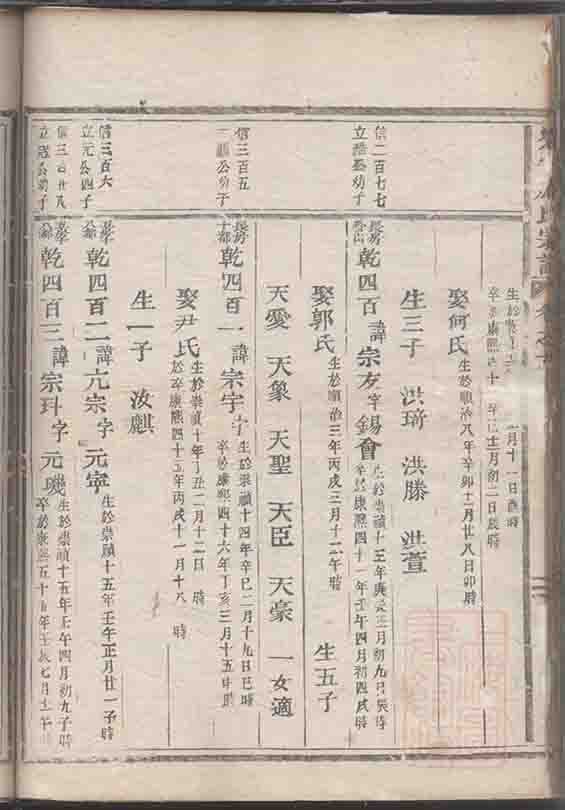 氏宗譜
生於崇 月十一日酉時
卒 康熙 十 年 十二月初二日辰時
娶何氏
生於順治八年辛卯十二月廿八日卯時
生三子 洪琦 洪勝 洪萱
信二百七七
立 公幼子
乾四百 諱宗友字錫會
生於崇禎十三年庚辰正月初九日辰時
卒於康熙四十一年壬午四月初四戌時
娶郭氏
生於順治三年丙戌三月十二午時
生五子
天愛 天象 天聖 天臣 天豪 一女適
信三百五
三 公幼子
乾四百一諱宗宇字
生於崇禎十四年辛巳二月十九日巳時
卒於康熙四十六年丁亥三月十五日 時
娶尹氏
生於崇禎十年丁丑二月十二日 時
卒康熙四十五年丙戌十一月十八 時
生一子 汝麒
信三百六
立元公四子
乾四百二諱亢宗字元寧
生於崇禎十五年壬午正月廿一子時
信三百廿八
立 公幼子
乾四百三諱宗 字元璣
生於崇禎十五年壬午四月初九子時
卒於康熙五十 年壬辰七月 午時